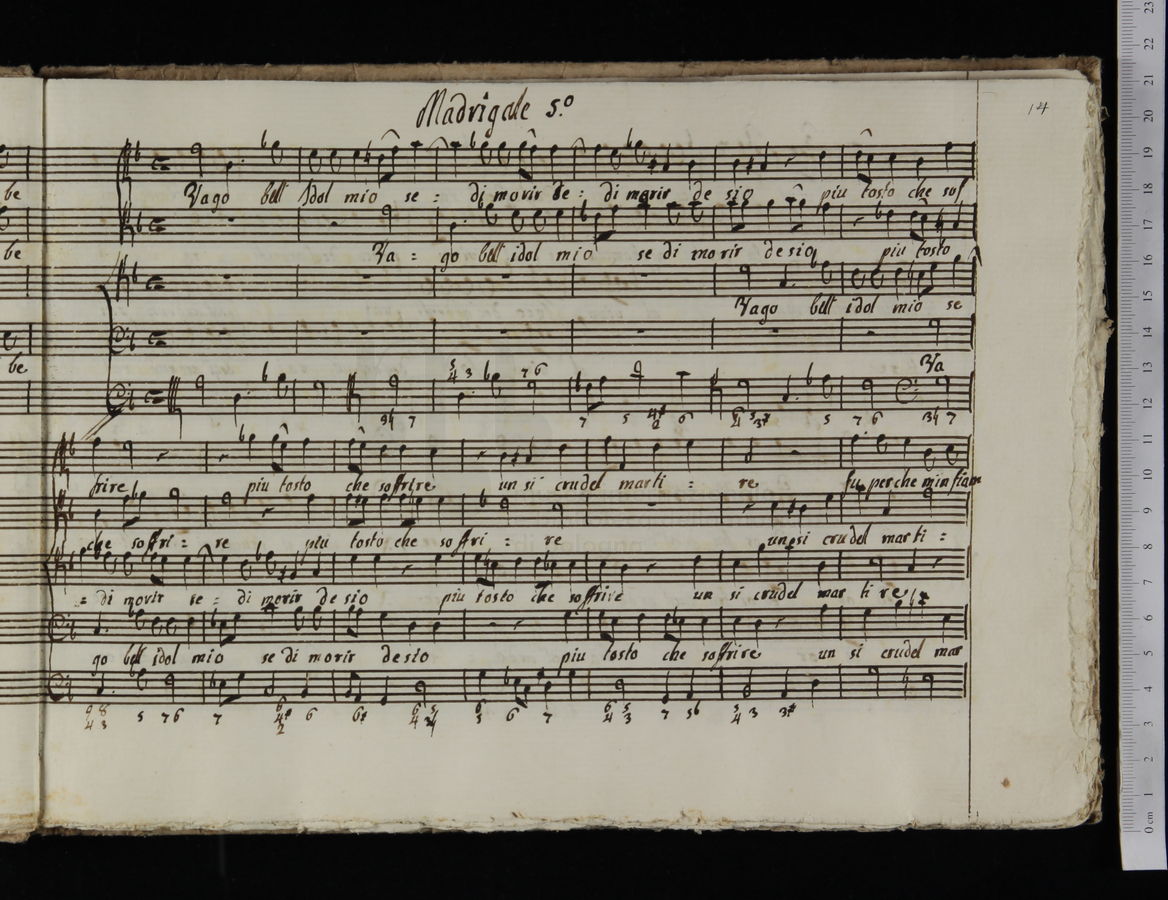 Madrigale 5.º
14
be
Vago bell Idol mio se = di morir de = di morir de sio piu tosto che sof
be
Va = go bell idol mio se di morir desio piu tosto
Vago bell idol mio se
be
Va
frire piu tosto che soffrire un si crudel marti = re fu perche m'in fiam
che soffri = re piu tosto che soffri = re un si crudel marti =
= di morir se = di morir de sio piu tosto che soffrire un si crudel mar ti re
go bell idol mio se di morir desio piu tosto che soffrire un si crudel mar